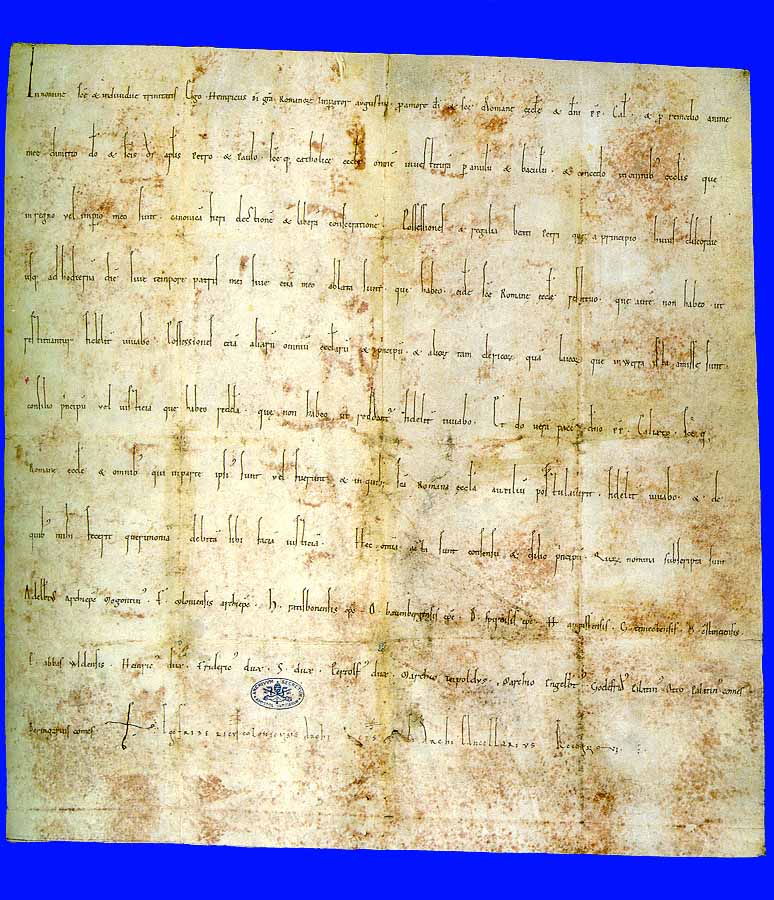 In nomine sċe & individue trinitatis Ego Heinricus di gra Romanor Imperator augustus pamore di & sċe Romane eccle & dni p.p. Cal. & p remedio anime
mee dimitto do & scis di aplis Petro & Paulo sceq; catholice eccle omne investitura p anulu & baculu & concedo in omnib ecclis que
in regno vel imp̄io meo sunt canonica fieri electione & libera consecratione. Possessiones & regalia beati Petri que a principio huius discordie
usq; ad hodierna die sive tempore patris mei sive etia meo ablata sunt que habeo eide sċe Romane eccle restituo que aute non habeo ut
restituantur fideliter iuvabo. Possessiones etia aliaru omniu ecclaru & principu & alior tam clericor qua laicor que in werra ista amisse sunt
consilio principu vel iusticia que habeo redda que non habeo ut reddant fideliter iuvabo. Et do vera pace dno p.p. Calixto sceq;
Romane eccle & omnib qui in parte ipsi sunt vel fuerunt & in quib sca Romana eccla auxiliu postulaverit fideliter iuvabo & de
quib mihi fecerit querimonia debita sibi facia iusticia. Hec omnia acta sunt consensu & csilio principu Quor nomina subscripta sunt
Adelbtus archiepc Mogontin F. coloniensis archiepc H. ratisbonensis epc O. bauenbergensis epc B. spirensis epc H. augustensis G. traiectensis O. constanciensis
E. abbas wldensis Heinric dux Fridericus dux S. dux Pertolf dux Marchio teipoldus Marchio Engelbt Godefrid Palatin Otto Palatin comes
Beringarius comes
Fredericus coloniensis Archi epcs & Archicancellarius Recognovi